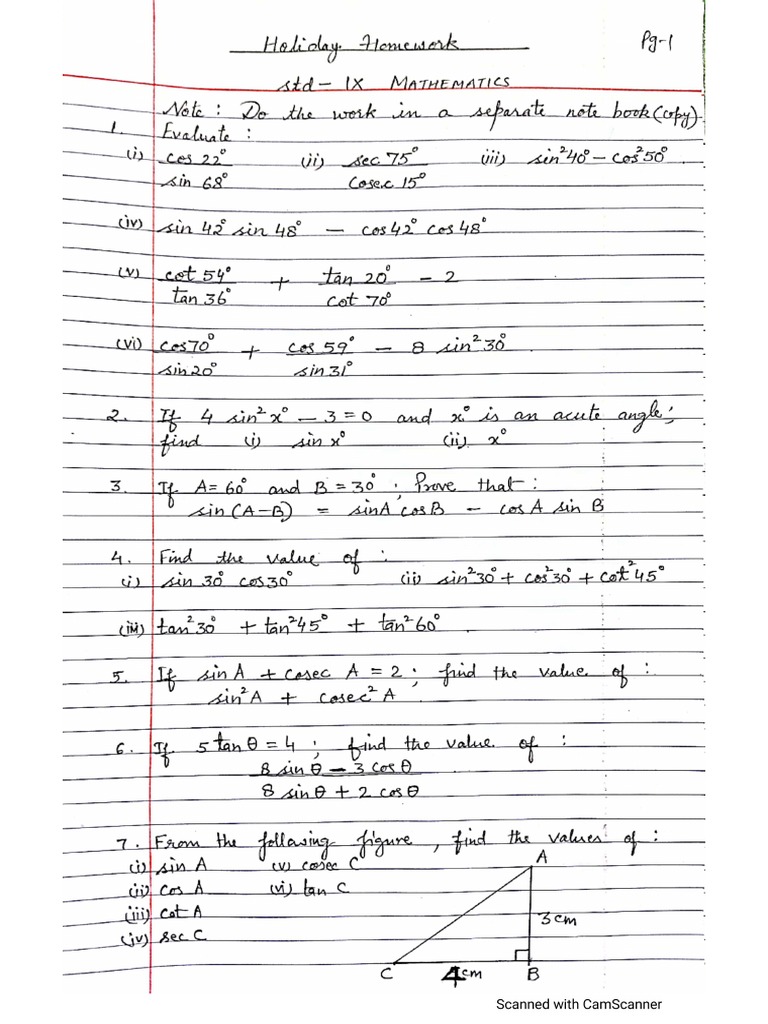 Holiday Homework Pg-1
std - IX MATHEMATICS
Note : Do the work in a separate note book (copy).
1. Evaluate :
(i) cos 22° / sin 68° (ii) sec 75° / cosec 15° (iii) sin²40° - cos²50°
(iv) sin 42° sin 48° - cos 42° cos 48°
(v) cot 54° / tan 36° + tan 20° / cot 70° - 2
(vi) cos 70° / sin 20° + cos 59° / sin 31° - 8 sin²30°
2. If 4 sin² x° - 3 = 0 and x° is an acute angle;
find (i) sin x° (ii) x°
3. If A = 60° and B = 30° ; Prove that :
sin (A-B) = sin A cos B - cos A sin B
4. Find the value of :
(i) sin 30° cos 30° (ii) sin²30° + cos²30° + cot²45°
(iii) tan²30° + tan²45° + tan²60°
5. If sin A + cosec A = 2 ; find the value of :
sin² A + cosec² A
6. If 5 tan θ = 4 ; find the value of :
8 sin θ - 3 cos θ
8 sin θ + 2 cos θ
7. From the following figure, find the values of :
(i) sin A (v) cosec C A
(ii) cos A (vi) tan C
(iii) cot A 3 cm
(iv) sec C
C 4 cm B
Scanned with CamScanner